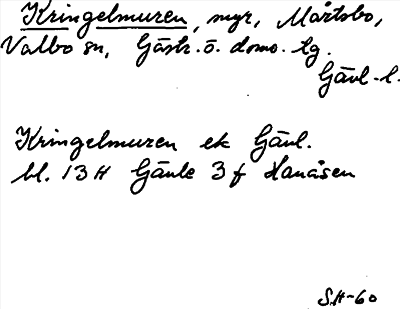 Kringelmuren, myr, Mårtsbo,
Valbo sn, Gästr. ö. doms. tg.
Gävl. l.
Kringelmuren ek Gävl.
bl. 13 H Gävle 3 f Hanåsen
S.H-60